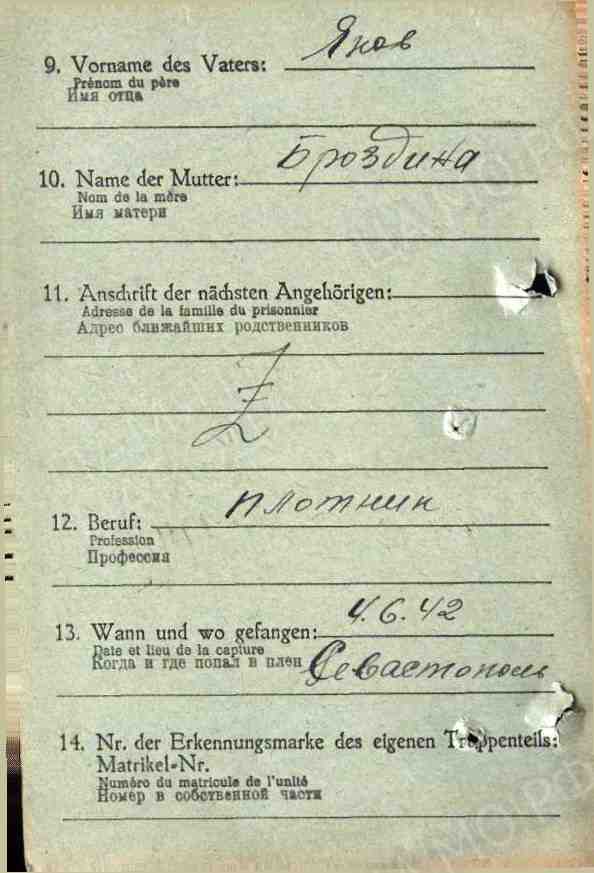 9. Vorname des Vaters: Яков
Prénom du père
Имя отца
10. Name der Mutter:Броздина
Nom de la mère
Имя матери
11. Anschrift der nächsten Angehörigen:
Adresse de la famille du prisonnier
Адрес ближайших родственников
12. Beruf: плотник
Profession
Профессия
13. Wann und wo gefangen: 4.6.42
Date et lieu de la capture
Когда и где попал в плен Севастополь
14. Nr. der Erkennungsmarke des eigenen Truppenteils:
Matrikel-Nr.
Numéro du matricule de l'unité
Номер в собственной части